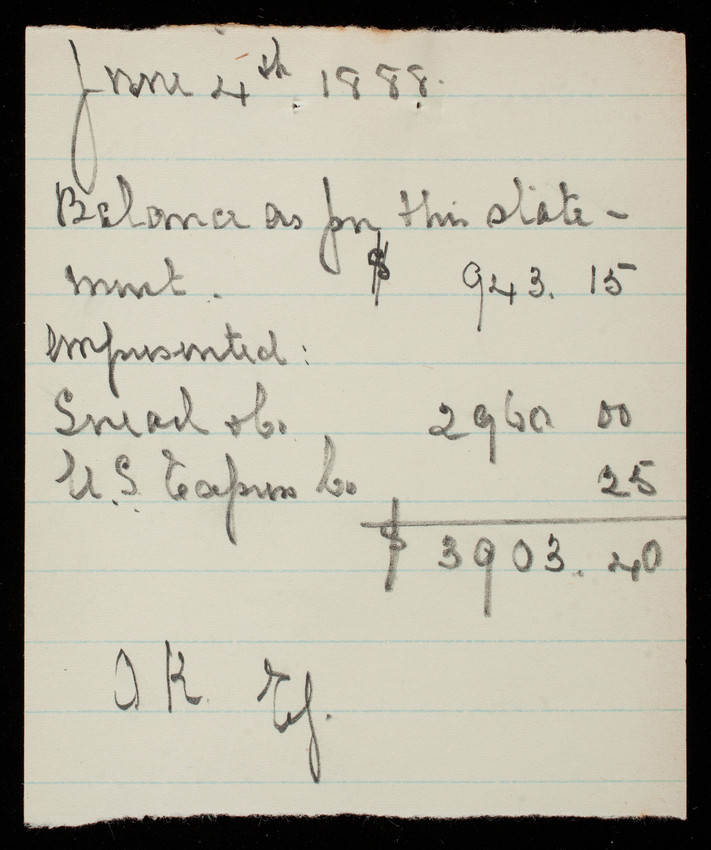 June 4th, 1888.
Balance as per this state-
ment. $ 943.15
Unpresented:
Snead & Co. 2960 00
U.S. Express Co 25
$ 3903.40
OK.